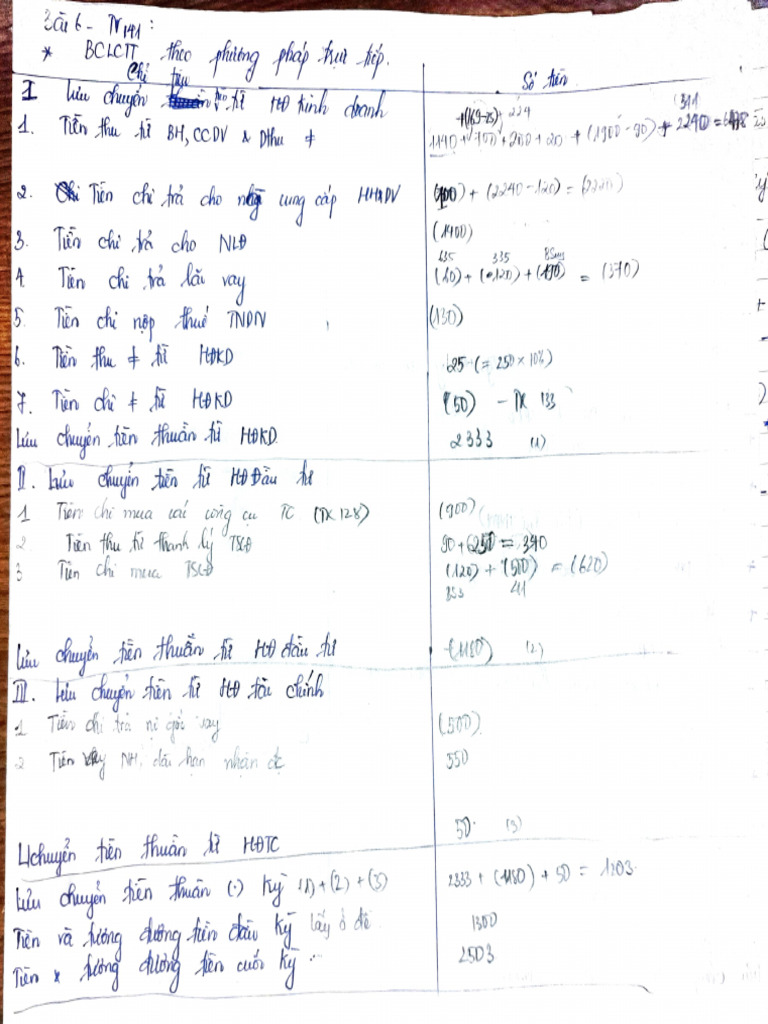 Bài 6 - Tr 141 :
* BCLCTT theo phương pháp trực tiếp.
Chỉ tiêu Số tiền
I Lưu chuyển từ HĐ kinh doanh
1. Tiền thu từ BH, CCDV & Dthu ≠
2. Tiền chi trả cho cung cấp HH&DV
3. Tiền chi trả cho NLĐ (1400)
635 335
4 Tiền chi trả lãi vay = (370)
5. Tiền chi nộp thuế TNDN (130)
6. Tiền thu ≠ từ HĐKD 25 (= 250 x 10%)
7. Tiền chi ≠ từ HĐKD (50) - TK 133
Lưu chuyển tiền thuần từ HĐKD 2333 (1)
II. Lưu chuyển tiền từ HĐ Đầu tư
1 Tiền chi mua các công cụ TC (TK 128) (900)
2 Tiền thu từ thanh lý TSCĐ 90 + 250 = 340
3 Tiền chi mua TSCĐ (120) + (500) = (620)
Lưu chuyển tiền thuần từ HĐ đầu tư (1180) (2)
III. Lưu chuyển tiền từ HĐ tài chính
1 Tiền chi trả nợ gốc vay (500)
2 Tiền vay NH, dài hạn nhận đc 550
L/chuyển tiền thuần từ HĐTC 50 (3)
Lưu chuyển tiền thuần (.) kỳ (1) + (2) + (3) 2333 + (1180) + 50 = 1203.
Tiền và tương đương tiền đầu kỳ lấy ở đề 1300
Tiền & tương đương tiền cuối kỳ ... 2503